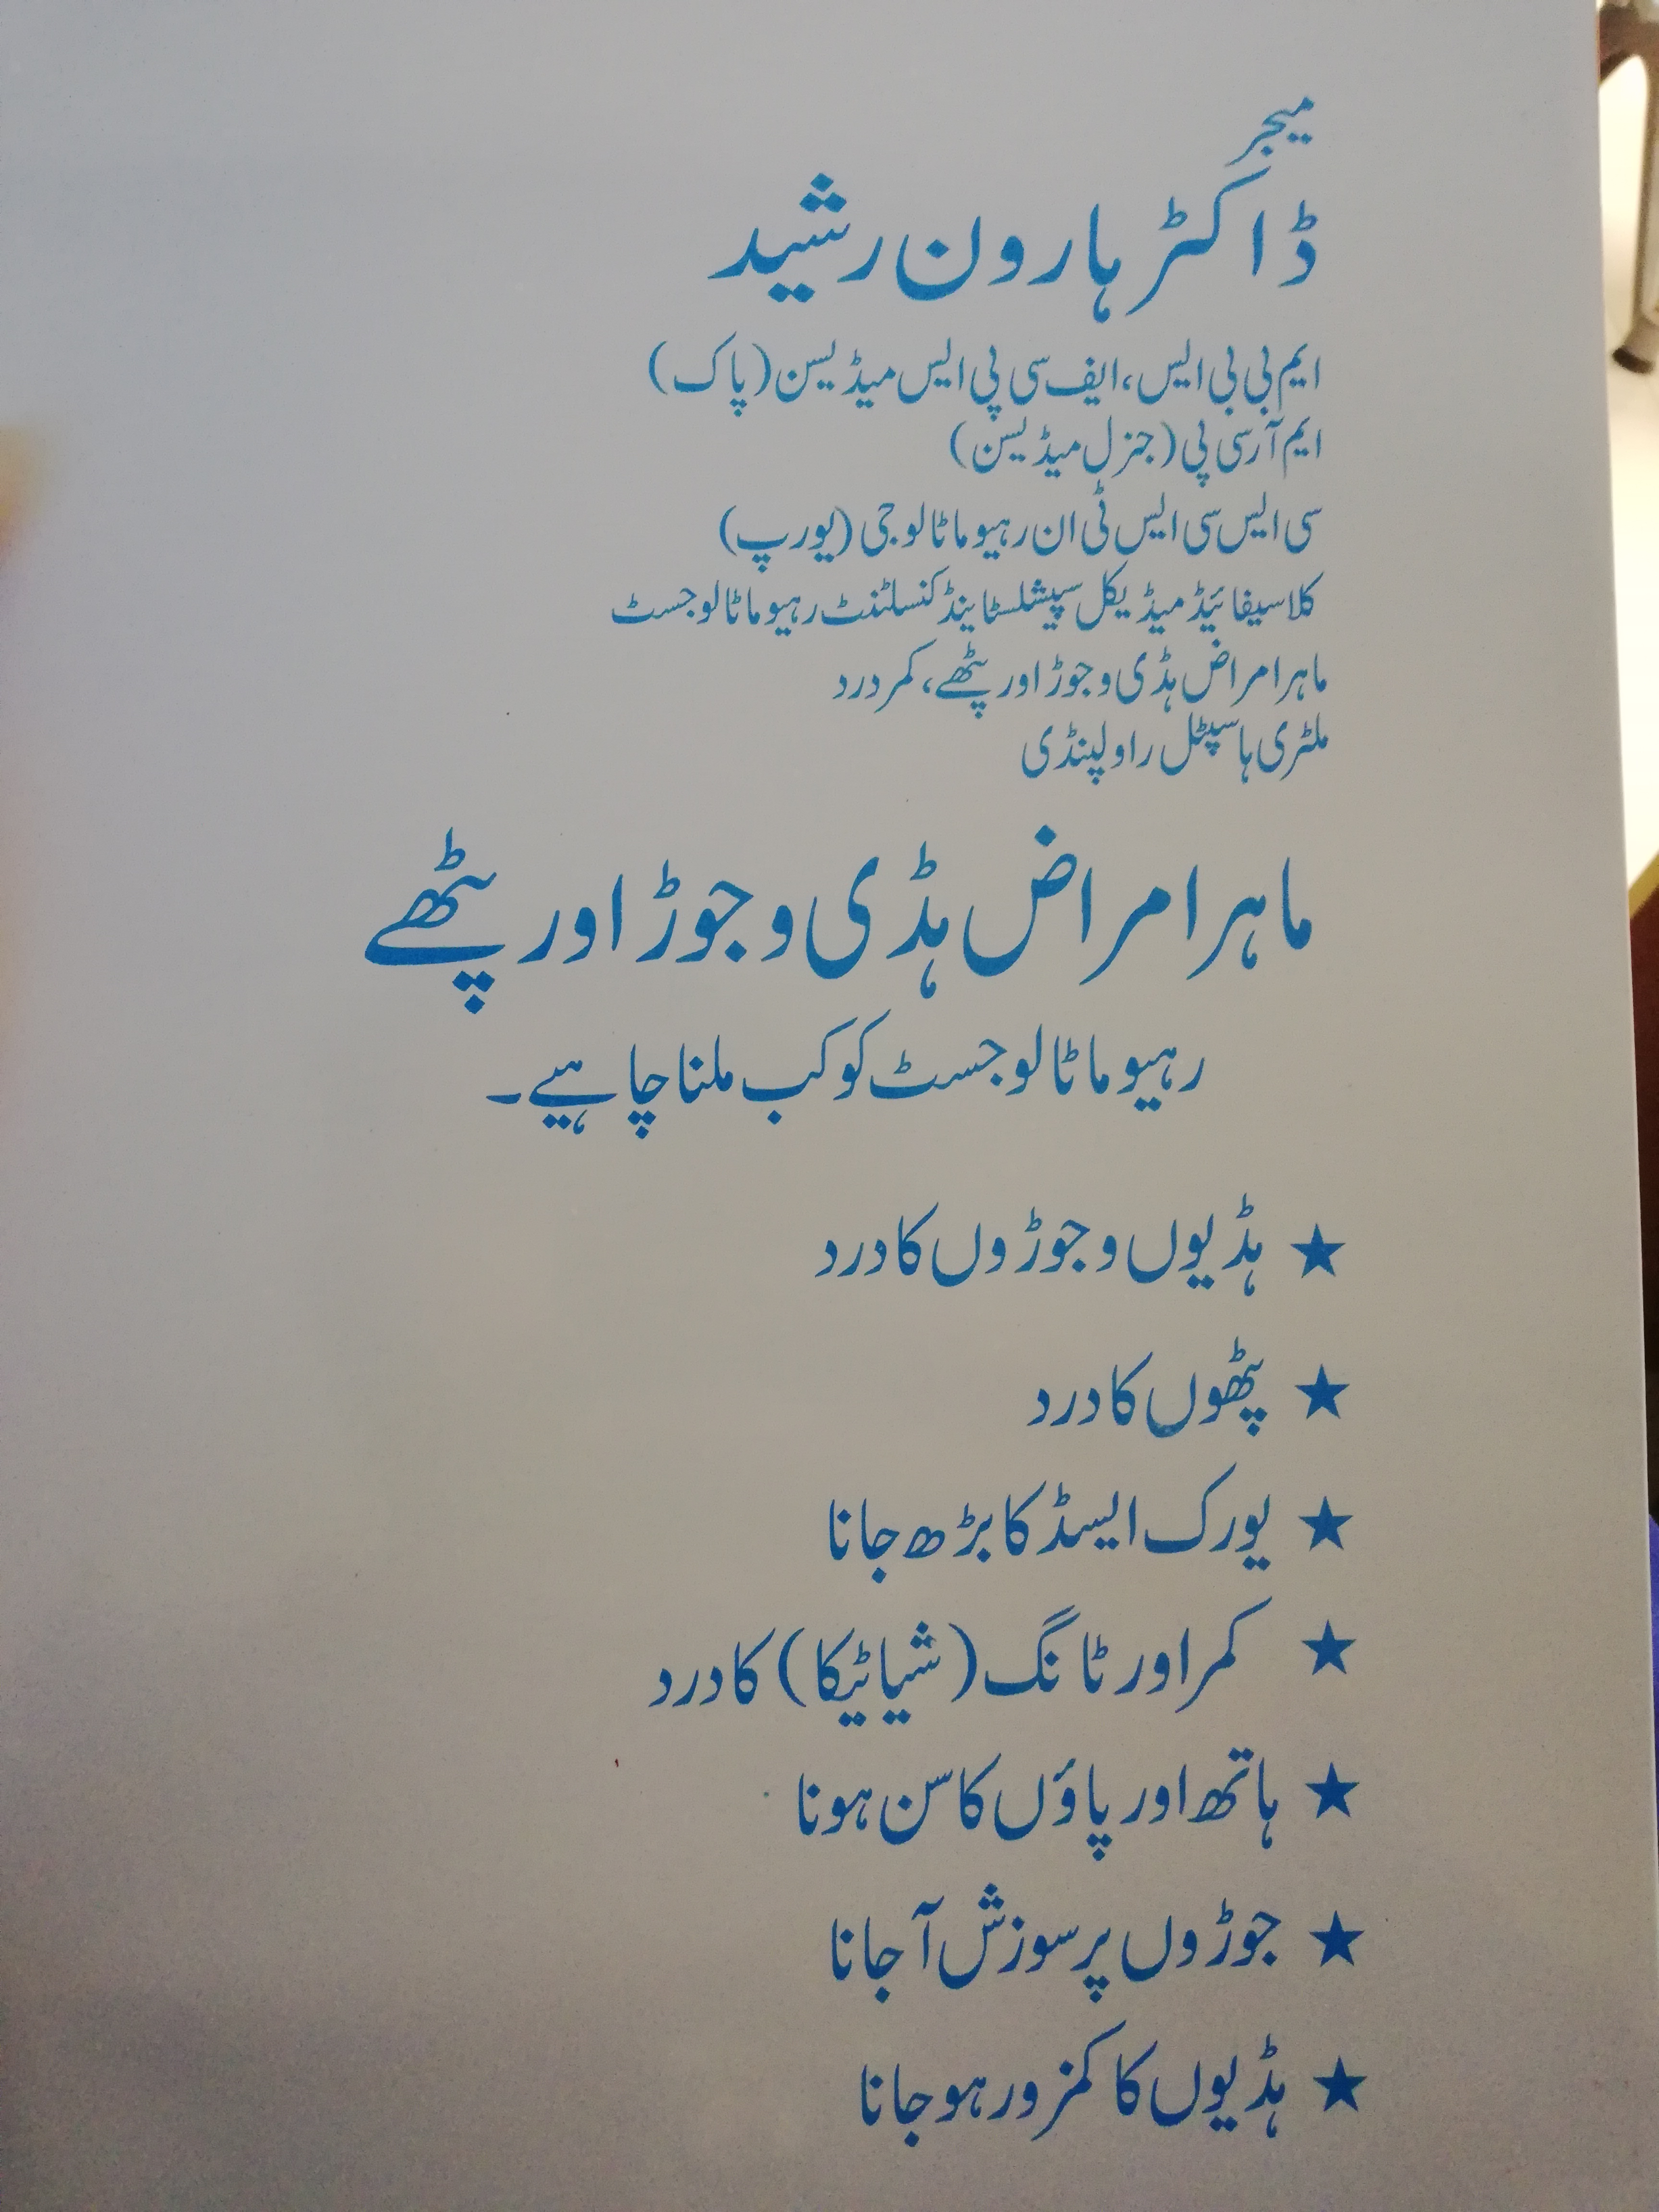 میجر
ڈاکٹر ہارون رشید
ایم بی بی ایس، ایف سی پی ایس میڈیسن (پاک)
ایم آر سی پی (جنرل میڈیسن)
سی ایس سی ایس ٹی ان رہیوماٹالوجی (یورپ)
کلاسیفائیڈ میڈیکل سپیشلسٹ اینڈ کنسلٹنٹ رہیوماٹالوجسٹ
ماہر امراض ہڈی و جوڑ اور پٹھے، کمر درد
ملٹری ہاسپٹل راولپنڈی
ماہر امراض ہڈی و جوڑ اور پٹھے
رہیوماٹالوجسٹ کو کب ملنا چاہیے۔
★ ہڈیوں و جوڑوں کا درد
★ پٹھوں کا درد
★ یورک ایسڈ کا بڑھ جانا
★ کمر اور ٹانگ (شیاٹیکا) کا درد
★ ہاتھ اور پاؤں کا سن ہونا
★ جوڑوں پر سوزش آ جانا
★ ہڈیوں کا کمزور ہو جانا